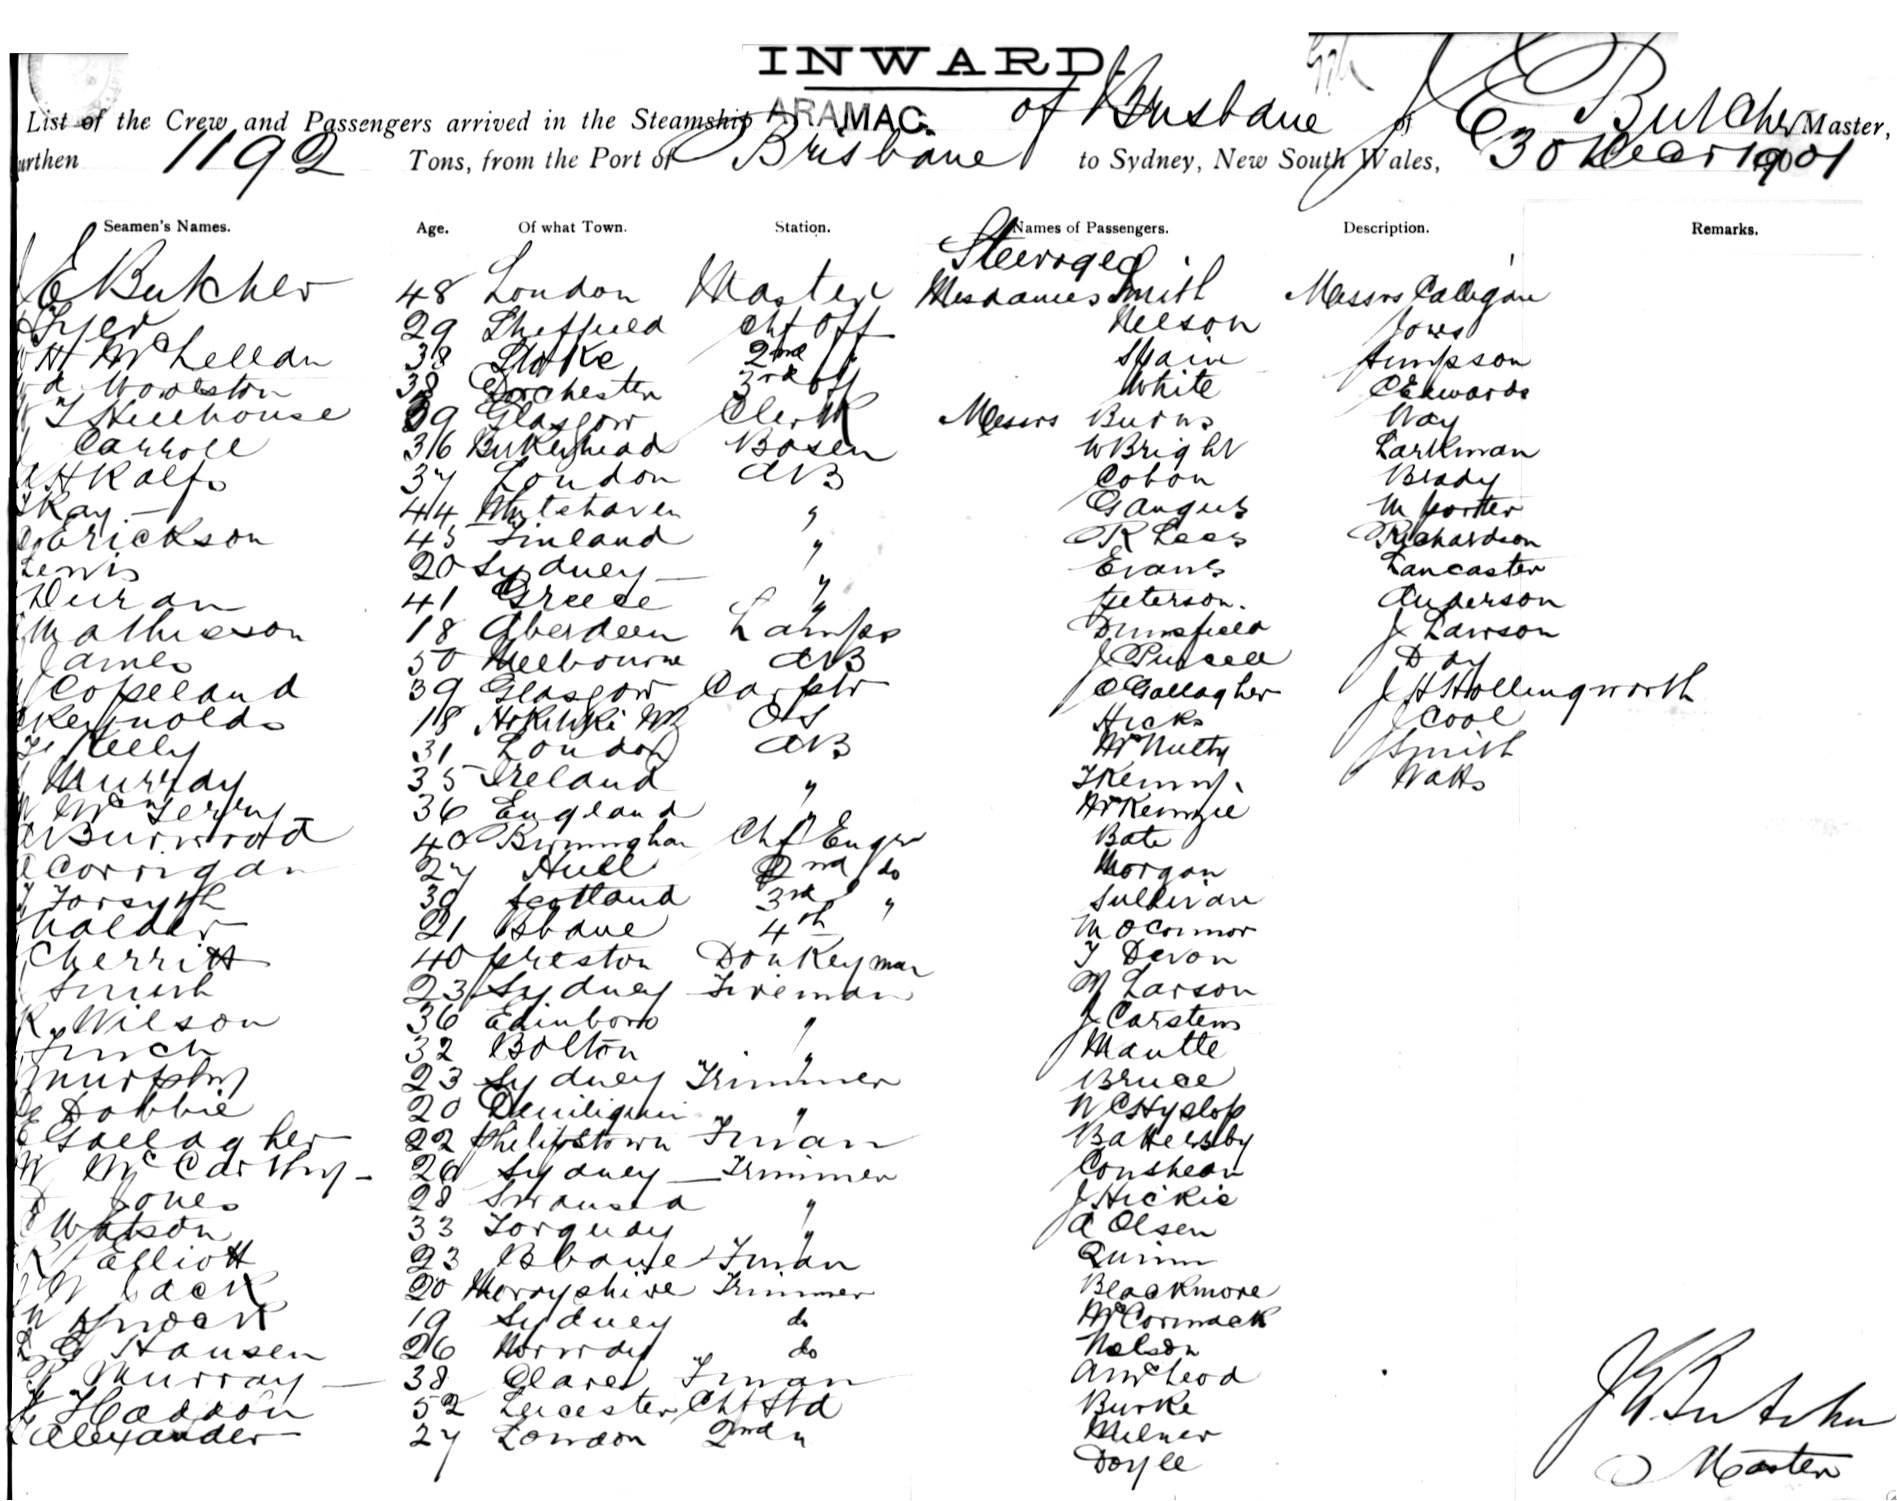 INWARD.
List of the Crew and Passengers arrived in the Steamship ARAMAC. of Brisbane of J E Butcher Master,
urthen 1192 Tons, from the Port of Brisbane to Sydney, New South Wales, 30 Decr 1901
Seamen's Names. Age. Of what Town. Station. Names of Passengers. Description. Remarks.
Steerage
J E Butcher 48 London Master Mesdames Smith Messrs Calligan
Tyer 29 Sheffield Chf Off Nelson Jones
H McLellan 38 Stoke 2nd " Spain Simpson
Woolston 38 Dorchester 3rd Off White C Edwards
T Hillhouse 39 Glasgow Clerk Messrs Burns Way
Carroll 36 Birkenhead Bosen W Bright Larkman
A H Ralfs 37 London AB Cobon Brady
Kay 44 Whitehaven " G Angus M Porter
Erickson 45 Finland " R Lees Richardson
Lewis 20 Sydney " Evans Lancaster
Duran 41 Greece " Peterson. Anderson
Mathieson 18 Aberdeen Lamps Dunsfield J Lawson
James 50 Melbourne AB J Purcell Day
Copeland 39 Glasgow Carptr O Gallagher J H Hollingworth
Reynolds 18 Hokitiki NZ OS Hicks J Cool
Kelly 31 London AB McNulty J Smith
Murray 35 Ireland " T Kenny Watts
McGerry 36 England " McKenzie
Burwood 40 Birmingham Chf Engr Bate
Corrigan 27 Hull 2nd do Morgan
Forsyth 39 Scotland 3rd " Sullivan
Nalder 21 Bbane 4th M O Connor
Cherritt 40 Preston Donkeyman T Devon
Smith 23 Sydney Fireman M Larson
R Wilson 36 Edinboro " J Carstens
Finch 32 Bolton " Mantle
Murphy 23 Sydney Trimmer Bruce
Dobbie 20 Deniliquin " W C Hyslop
Gallagher 22 Philipstown Fman Battersby
W McCarthy 26 Sydney Trimmer Conshean
D Jones 28 Swansea " J Hickie
Watson 33 Torquay " A Olsen
Elliott 23 Bbane Fman Quinn
W Jack 20 Morayshire Trimmer Blackmore
19 Sydney do McCormack
Hansen 26 Norway do Nelson
Murray 38 Clare Fman A McLeod
Haddon 52 Leicester Chf Std Burke
Alexander 27 London 2nd " Milner
Doyle
J E Butcher
Master